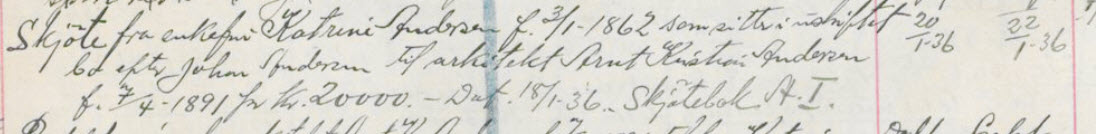 Skjöte fra enkefru Katrine Andersen f. 3/1-1862 som sitter i uskiftet 20/1-36 22/1-36
bo efter Johan Andersen til arkitekt Arnt Kristian Andersen
f. 7/4-1891 for kr. 20000.- Dat. 18/1-36. Skjötebok A.I.